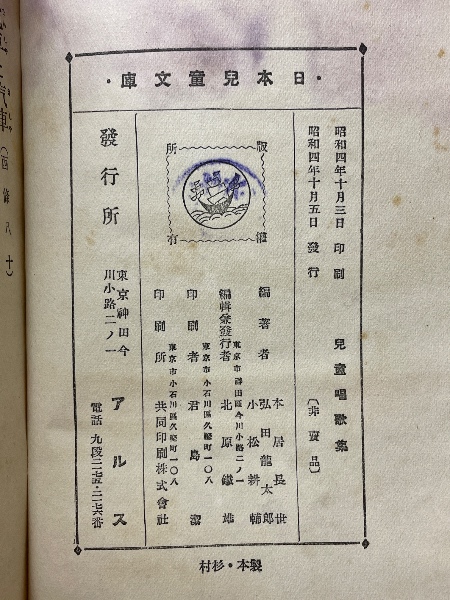 ・日本兒童文庫・
昭和四年十月三日印刷
昭和四年十月五日發行
兒童唱歌集
〔非賣品〕
版權
所有
編著者
本居長世
弘田龍太郎
小松耕輔
東京市神田區今川小路二ノ一
編輯兼發行者 北原鐵雄
東京市小石川區久堅町一〇八
印刷者 君島潔
東京市小石川區久堅町一〇八
印刷所 共同印刷株式會社
發行所
東京神田今
川小路二ノ一
アルス
電話 九段二一七五・二一七六番
製本・杉村
汽車(西條八十)